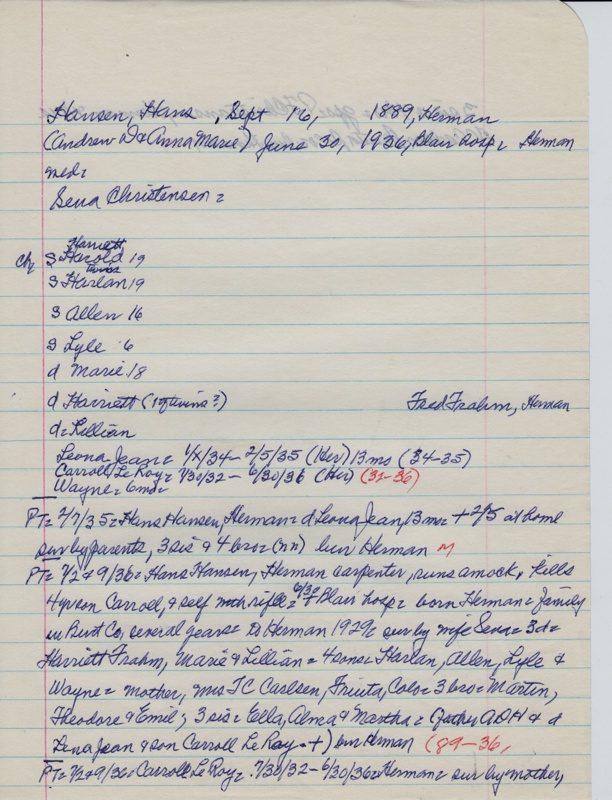 Hansen, Hans , Sept 16, 1889, Herman
(Andrew D & Anna Marie) June 30, 1936, Blair hosp = Herman
med =
Sena Christensen =
Harriett
Ch S Harold 19
twins
S Harlan 19
S Allen 16
S Lyle 6
d Marie 18
d Harriett (1 of twins?) Fred Frahm, Herman
d = Lillian
Leona Jean = 1/x/34 - 2/5/35 (Her) 13 mo (34-35)
Carroll Le Roy = 7/30/32 - 6/30/36 (Her) (32-36)
Wayne = 6 mo =
PT = 2/7/35 = Hans Hansen, Herman = d Leona Jean, 13 mo = + 2/5 at home
sur by parents, 3 sis & 4 bro = (nn) bur Herman M
PT = 7/2 & 9/36 = Hans Hansen, Herman carpenter, runs amock, kills
4 yr son Carroll, & self with rifle = 6/30 + Blair hosp = born Herman = family
in Burt Co, several years = to Herman 1929 = sur by wife Sena = 3 d =
Harriett Frahm, Marie & Lillian = 4 sons = Harlan, Allen, Lyle &
Wayne = mother, Mrs JC Carlsen, Fruita, Colo = 3 bro = Martin,
Theodore & Emil; 3 sis = Ella, Alma & Martha = (father ADH & d
Lena Jean & son Carroll Le Roy = +) bur Herman (89-36,
PT = 7/2 & 9/36 = Carroll Le Roy = 7/30/32 - 6/30/36 = Herman = sur by mother,